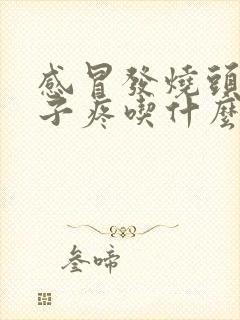 感冒發燒頭
子疼喫什麼
叁啼